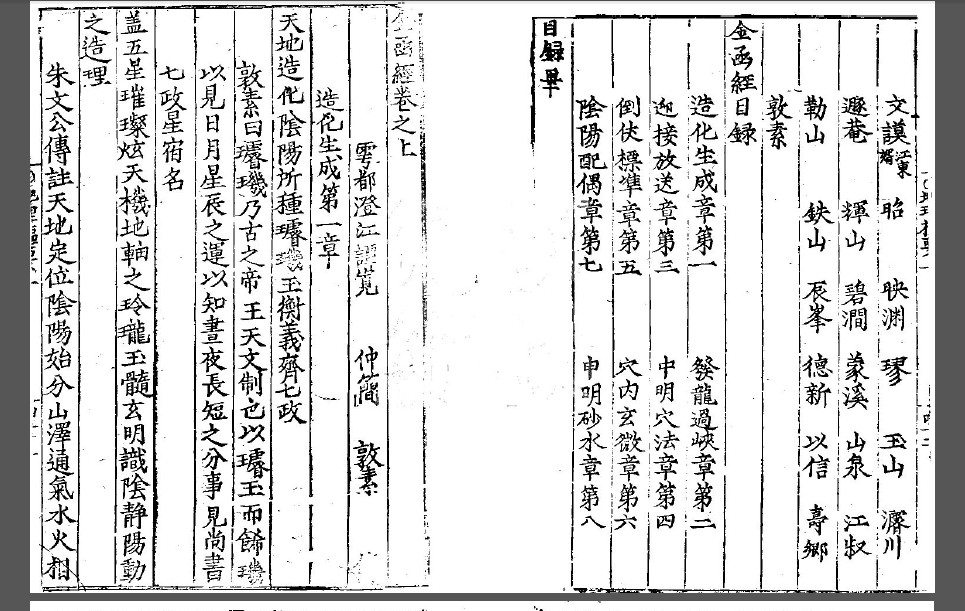 文謨 江東 昭 映渊 璆 玉山 濬川
遯菴 輝山 碧澗 蒙溪 山泉 江叔
勒山 鈌山 辰峯 德新 以信 壽鄉
敦素
金函經目録
造化生成章第一 發龍過峽章第二
迎接放送章第三 中明穴法章第四
倒仗標準章第五 穴内玄微章第六
陰陽配偶章第七 申明砂水章第八
目録畢
函經卷之上
雩都澄江譚寬 仲簡 敦素
造化生成第一章
天地造化陰陽所種璿璣玉衡義齊七政
敦素曰璿璣乃古之帝王天文制也以璿玉而餙璣
以見日月星辰之運以知晝夜長短之分事見尚書
七政星宿名
盖五星璀璨炫天機地軸之玲瓏玉髓玄明識陰静陽動
之造理
朱文公傳註天地定位陰陽始分山澤通氣水火相